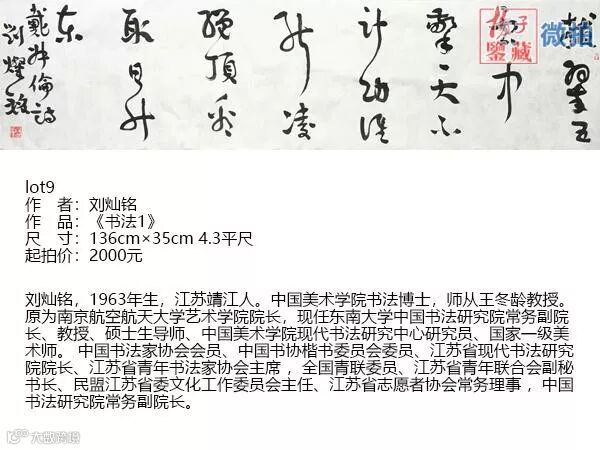 拔翠五
雲中
擎天不
計功誰
能凌
絕頂看
取日升
东
戴叔倫詩
劉燦銘
子
鉴藏
微拍
lot9
作 者：刘灿铭
作 品：《书法1》
尺 寸：136cm×35cm 4.3平尺
起拍价：2000元
刘灿铭，1963年生，江苏靖江人。中国美术学院书法博士，师从王冬龄教授。
原为南京航空航天大学艺术学院院长，现任东南大学中国书法研究院常务副院
长、教授、硕士生导师、中国美术学院现代书法研究中心研究员、国家一级美
术师。 中国书法家协会会员、中国书协楷书委员会委员、江苏省现代书法研究
院院长、江苏省青年书法家协会主席 ，全国青联委员、江苏省青年联合会副秘
书长、民盟江苏省委文化工作委员会主任、江苏省志愿者协会常务理事 ，中国
书法研究院常务副院长。
大数跨境